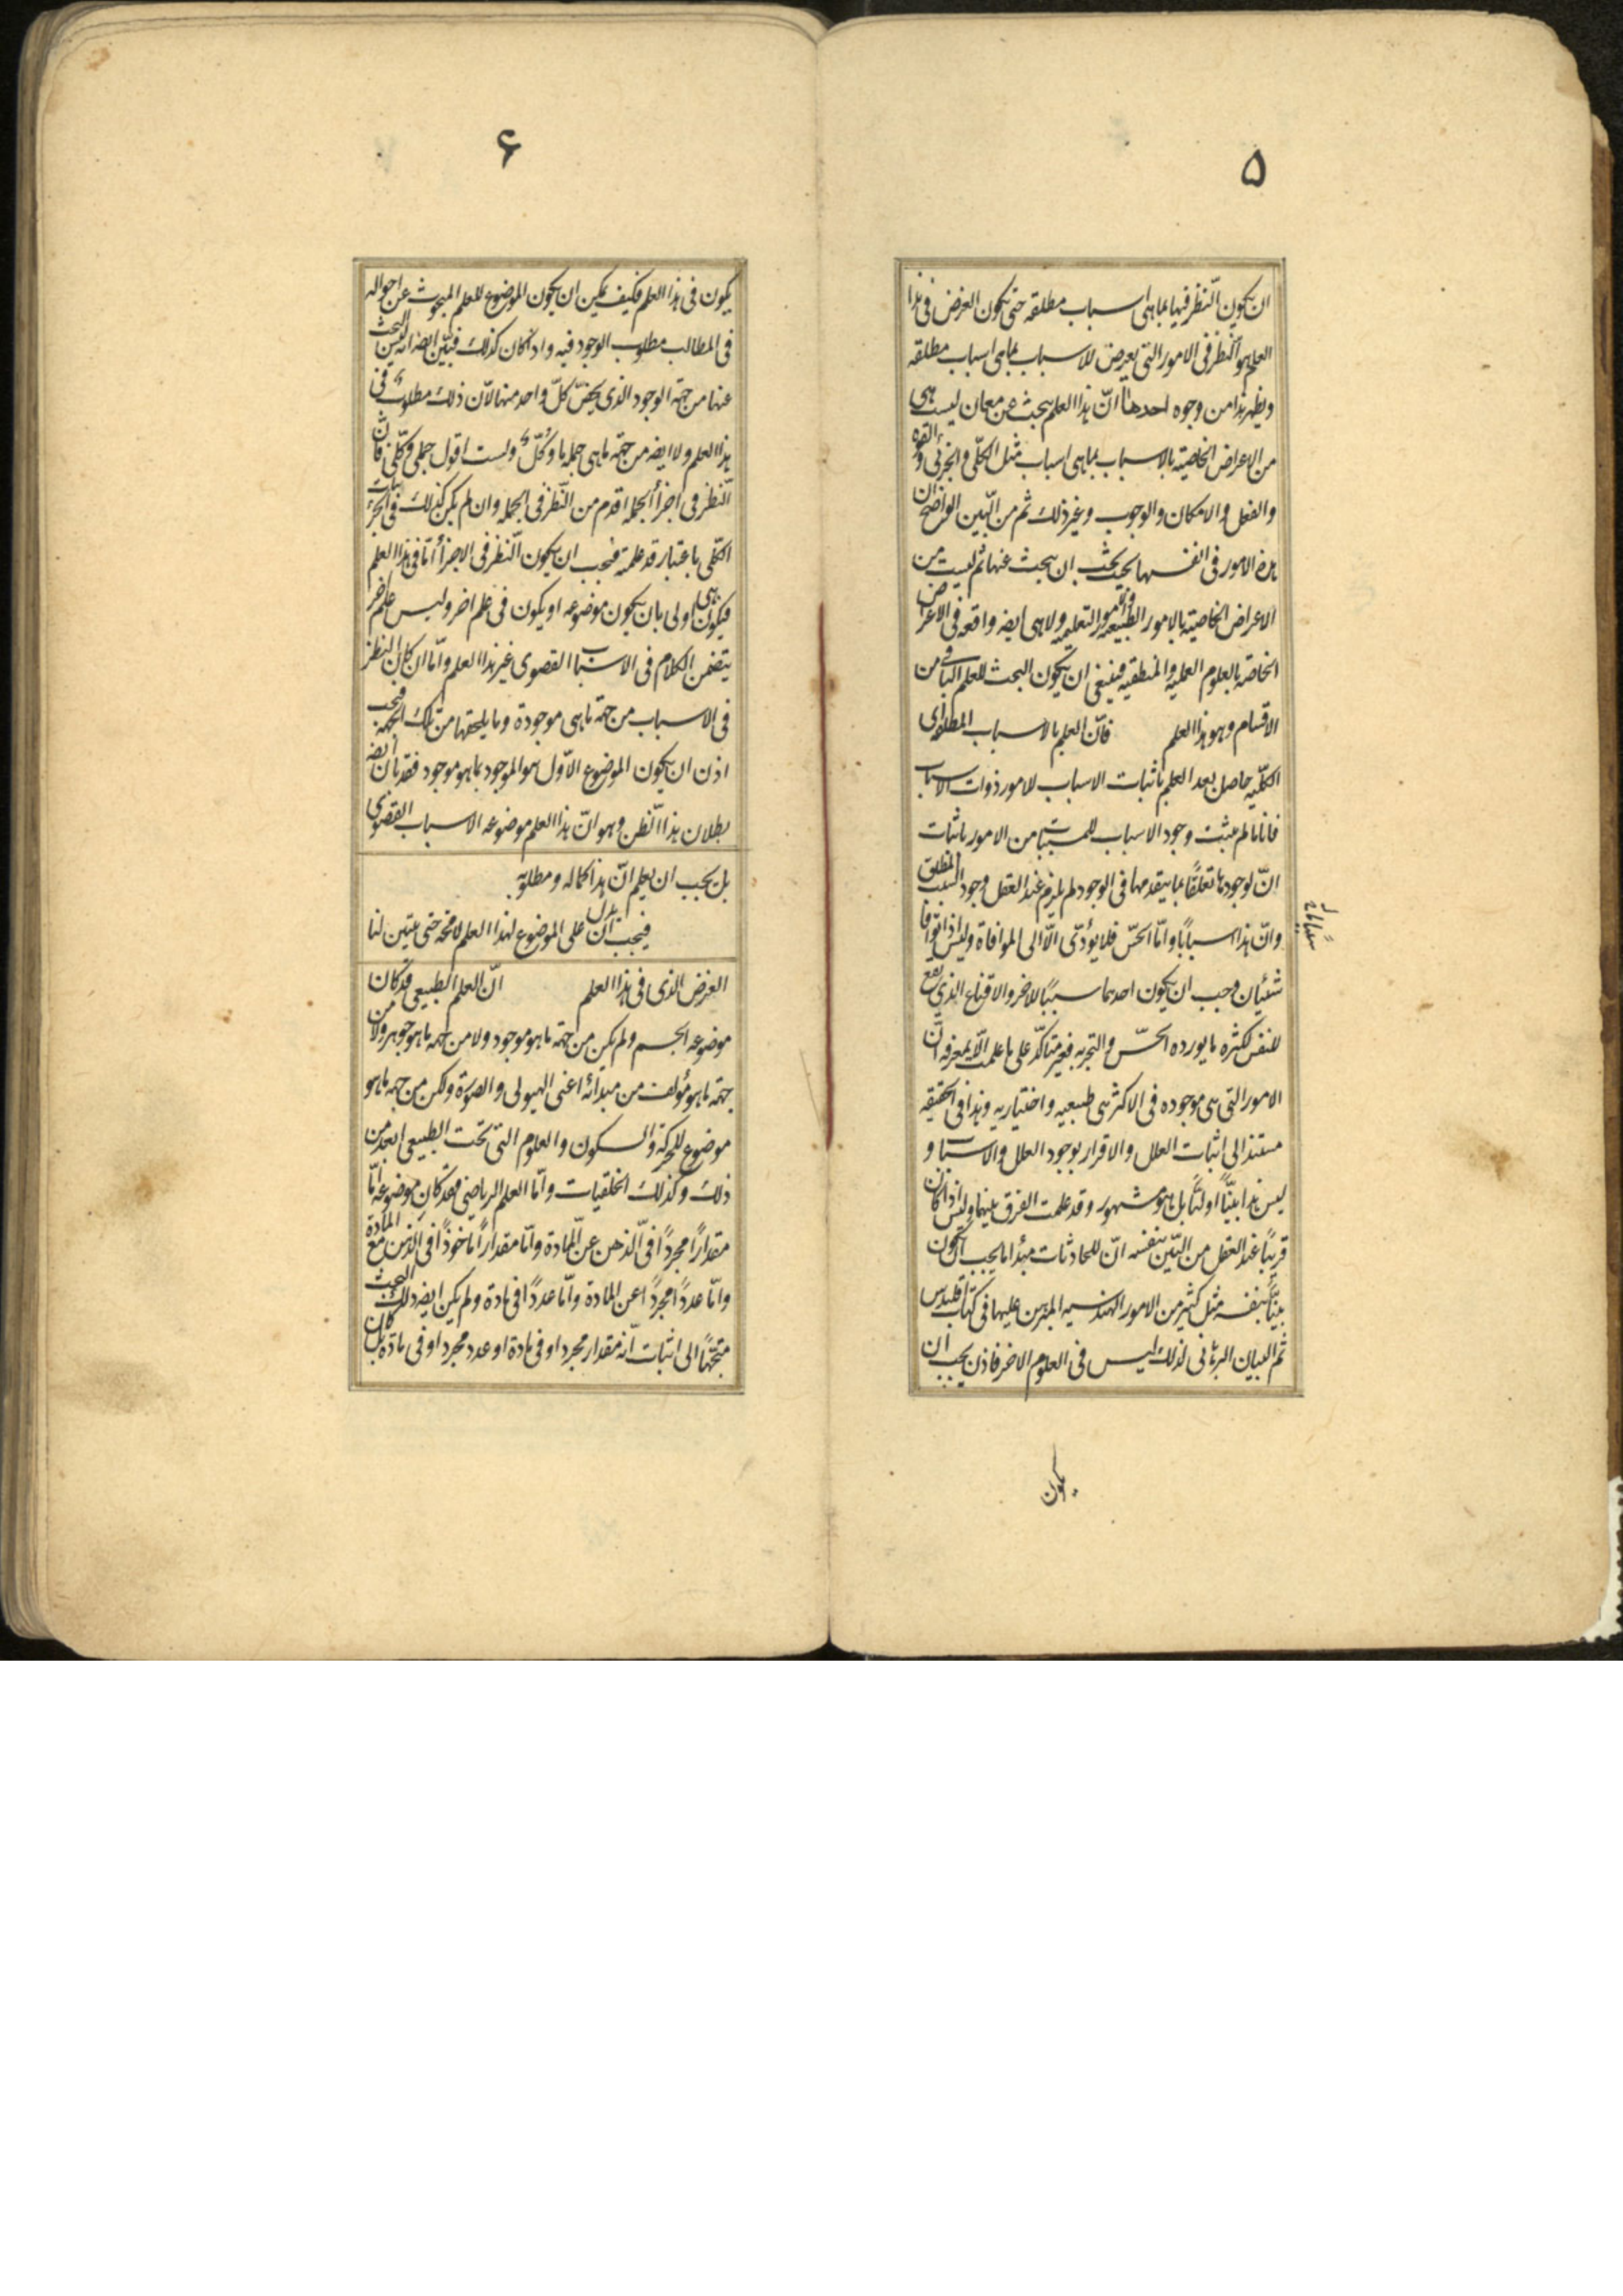 ۵
ان يكون النّظر فيها بما هى اسباب مطلقه حتى يكون الغرض فى هذا
العلم هو النّظر فى الامور التى يعرض للاسباب بما هى اسباب مطلقه
ويظهر هذا من وجوه احدها انّ هذا العلم يبحث عن معان ليست هى
من الاعراض الخاصيّه بالاسباب بما هى اسباب مثل الكلّى والجزئى والقوه
والفعل والامكان والوجوب وغير ذلك ثم من البّين الواضح ان
هذه الامور فى انفسها بحيث يجب ان يبحث عنها ثم ليست من
الاعراض الخاصيّة بالامور الطبيعيه والامور التعليميه ولا هى ايضه واقعه فى الاعراض
الخاصّة بالعلوم العمليه والمنطقيه فينبغى ان يكون البحث للعلم الباقى من
الاقسام وهو هذا العلم فانّ العلم بالاسباب المطلقه اى
الكلّيه حاصل بعد العلم باثبات الاسباب للامور ذوات الاسباب
فانا ما لم نثبت وجود الاسباب للمسبّبات من الامور باثبات
انّ لوجودها تعلّقًا بما يتقدمها فى الوجود لم يلزم عند العقل وجود السبب المطلق
وانّ هذا سببًا ما وامّا الحسّ فلا يؤدّى الّا الى الموافاة وليس اذا توافا
شيئان وجب ان يكون احدهما سببًا للاخر والاقناع الذى يقع
للنفس لكثرة ما يورده الحسّ والتجربه فغير متاكّد على ما علمت الّا بمعرفه انّ
الامور التى هى موجوده فى الاكثر هى طبيعيه واختياريه وهذا فى الحقيقه
مستند الى اثبات العلل والاقرار بوجود العلل والاسباب و
ليس هذا بيّنًا اوليًّا بل هو مشهور وقد علمت الفرق بينهما وليس اذا كان
قريبًا عند العقل من البّين بنفسه انّ للحادثات مبدأ ما يجب ان يكون
بيّنًا بنفسه مثل كثير من الامور الهندسيه المبرهن عليها فى كتاب اقليدس
ثم البيان البرهانى لذلك ليس فى العلوم الاخر فاذن يجب ان
يكون
۶
يكون فى هذا العلم فكيف يمكن ان يكون الموضوع للعلم المبحوث عن احواله
فى المطالب مطلوب الوجود فيه واذ كان كذلك فبيّن ايضه انه ليس البحث
عنها من جهة الوجود الذى يخصّ كلّ واحد منها لانّ ذلك مطلوبٌ فى
هذا العلم ولا ايضه من جهة ما هى جمله ما وكلٌّ ولست اقول جملى وكلّى فانّ
النّظر فى اجزأ الجمله اقدم من النّظر فى الجمله وان لم يكن كذلك فى الجزئيات
الكلّى باعتبار قد علمته فيجب ان يكون النّظر فى الاجزأ امّا فى هذا العلم
فيكون هى اولى بان يكون موضوعه او يكون فى علم اخر وليس علم اخر
يتضمن الكلام فى الاسباب القصوى غير هذا العلم وامّا ان كان النظر
فى الاسباب من جهة ما هى موجودة وما يلحقها من تلك الجهة فيجب
اذن ان يكون الموضوع الاوّل هو الموجود بما هو موجود فقد بان ايضه
بطلان هذا النّظن وهو انّ هذا العلم موضوعه الاسباب القصوى
بل يجب ان يعلم انّ هذا كماله ومطلوبه
فيجب ان يدل على الموضوع لهذا العلم لا محة حتى يتبين لنا
الغرض الذى فى هذا العلم انّ العلم الطبيعى قد كان
موضوعه الجسم ولم يكن من جهة ما هو موجود ولا من جهة ما هو جوهر ولا من
جهة ما هو مؤلف من مبدأيه اعنى الهيولى والصورة ولكن من جهة ما هو
موضوع للحركة والسكون والعلوم التى تحت الطبيعى ابعد من
ذلك وكذلك الخلقيات وامّا العلم الرياضى فقد كان موضوعه امّا
مقدارًا مجردًا فى الّذهن عن المادة وامّا مقدارًا ماخوذًا فى الذهن مع المادة
وامّا عددًا مجردًا عن المادة وامّا عددًا فى مادة ولم يكن ايضه ذلك البحث
متجّهًا الى اثبات انّه مقدار مجرد او فى مادة او عدد مجرد او فى مادة بل كان